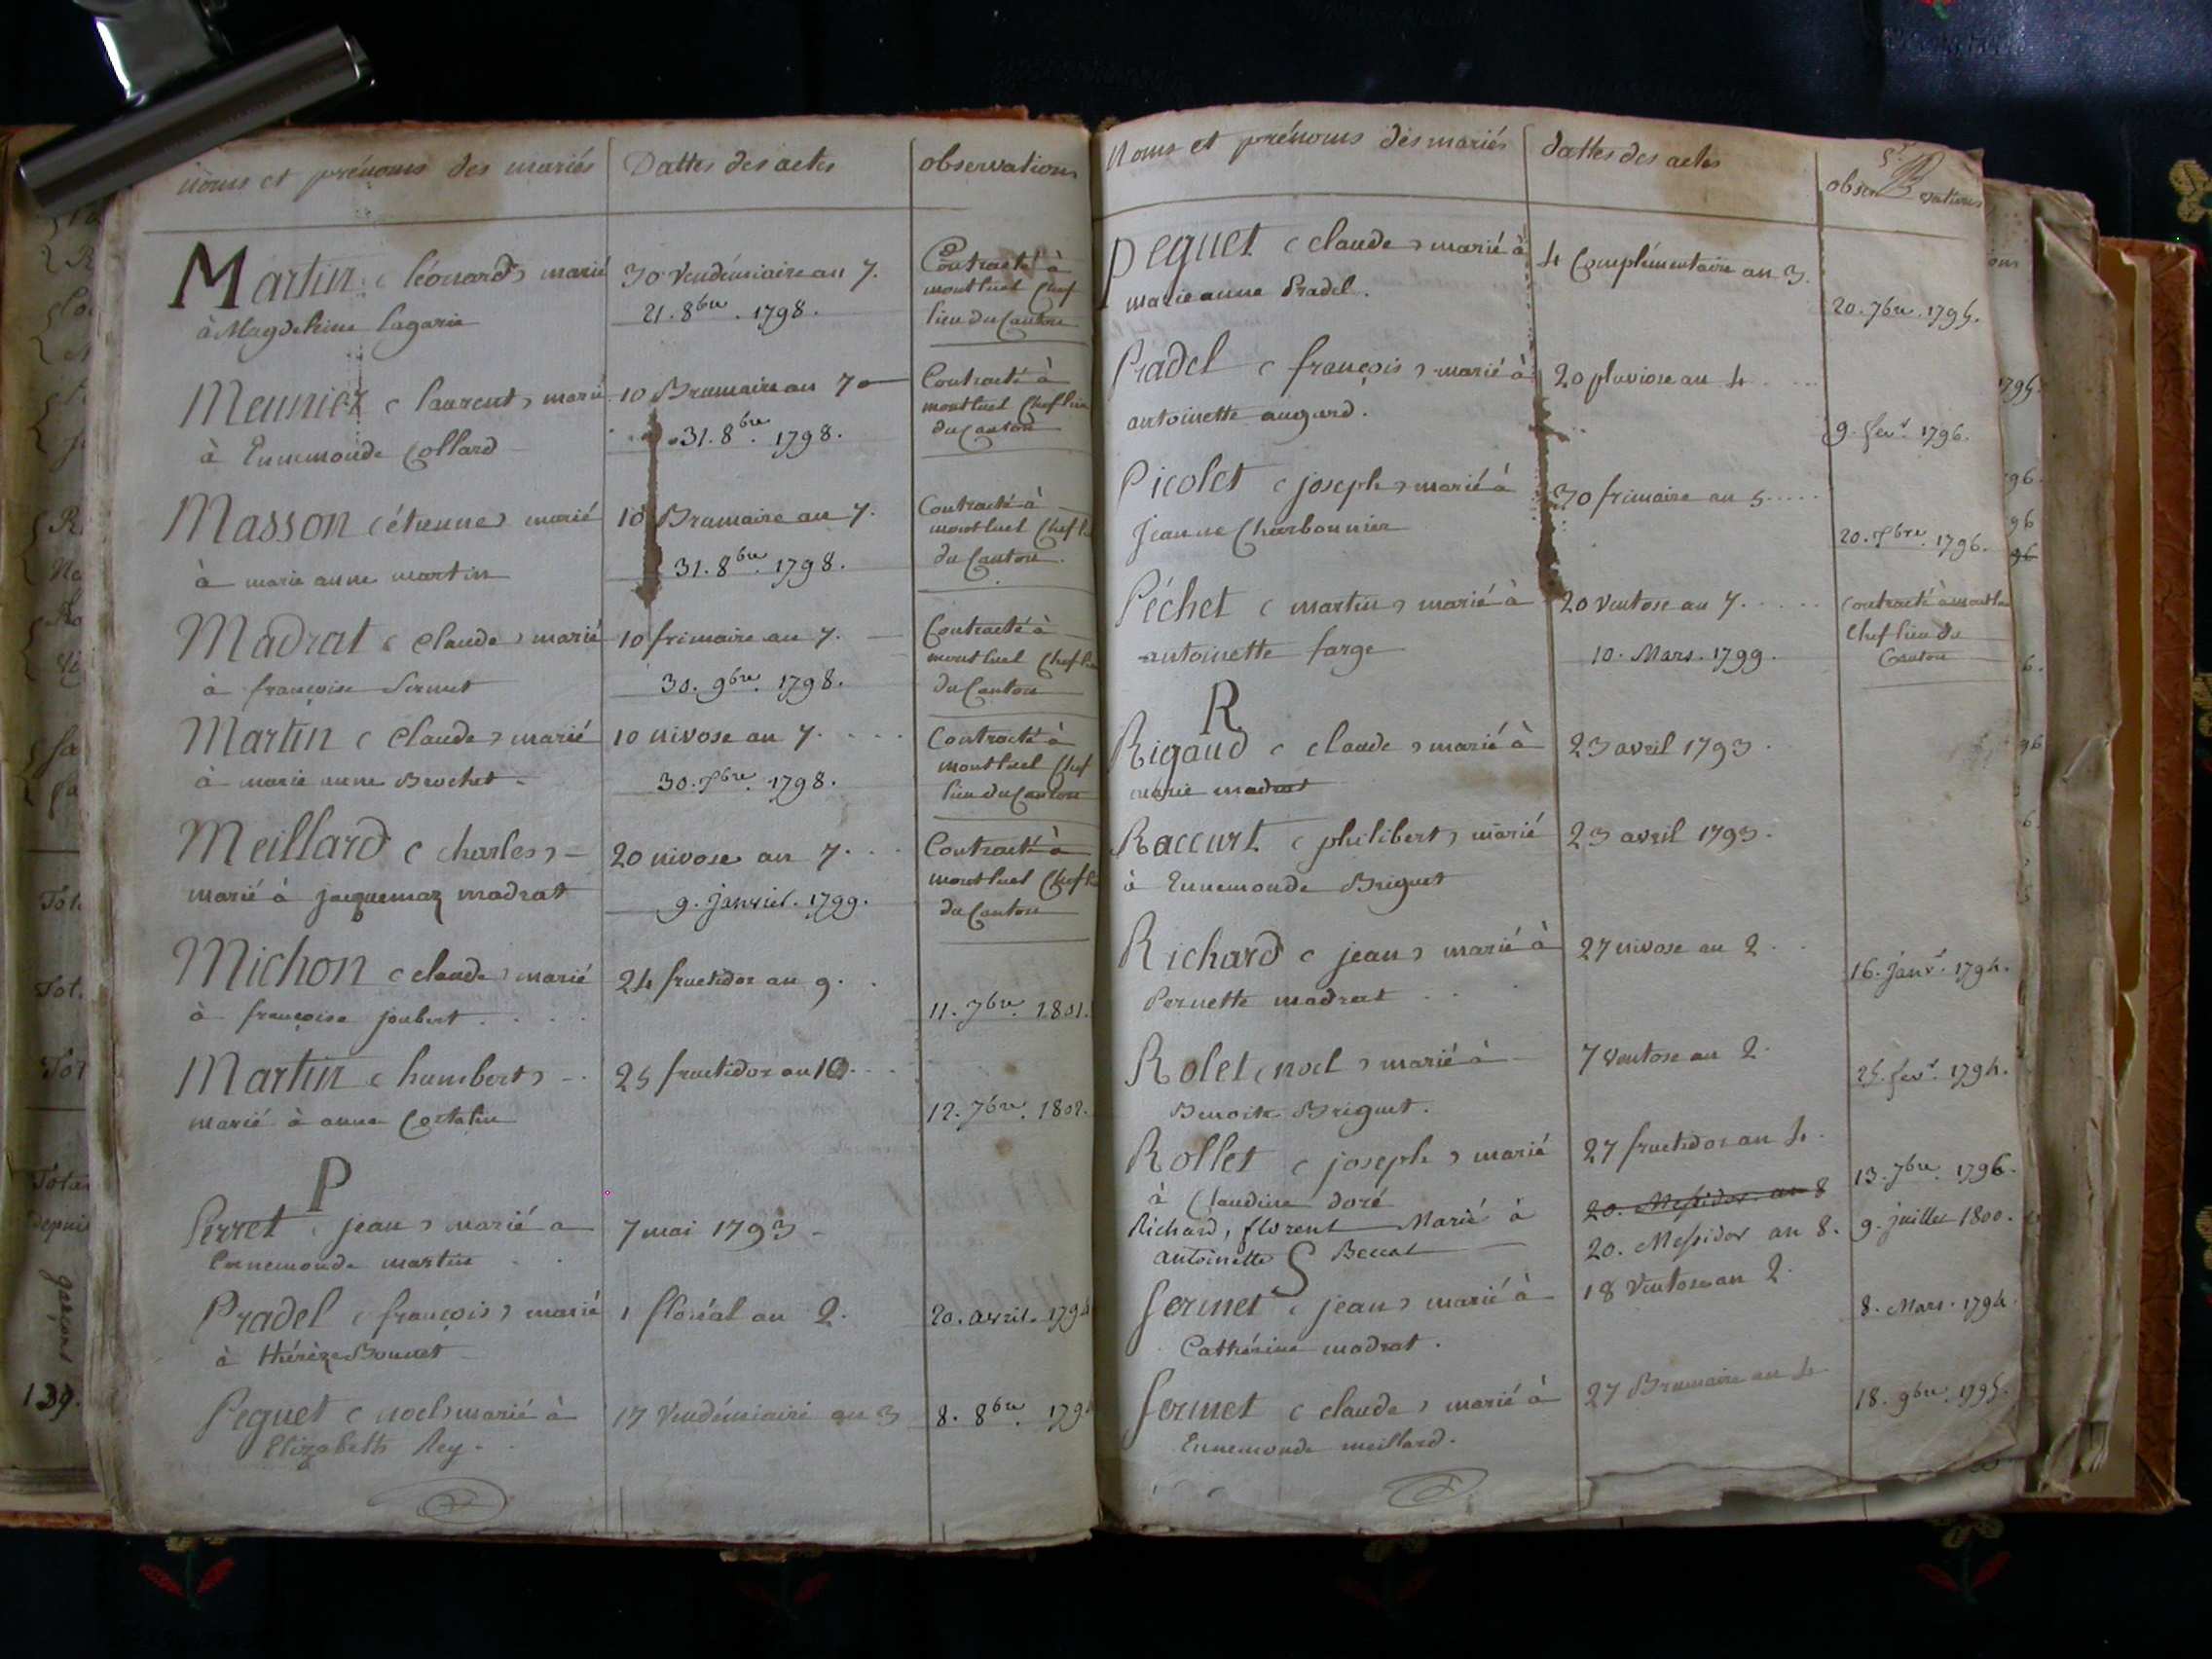 noms et prénoms des mariés Dattes des actes observations
Martin (léonard) marié 30 Vendémiaire an 7. Contracté à
montluel Chef
à Magdeleine Lagarie 21. 8bre. 1798. lieu du Canton
Meunier (laurent) marié 10 Brumaire an 7 Contracté à
montluel Chef lieu
à Ennemonde Collard 31. 8bre. 1798. du Canton
Masson (étienne) marié 10 Brumaire an 7. Contracté à
montluel Chef l
à marie anne martin 31. 8bre. 1798. du Canton.
Madrat (Claude) marié 10 frimaire an 7. Contracté à
montluel Chef l
à françoise Sermet 30. 9bre. 1798. du Canton
Martin (Claude) marié 10 nivose an 7. Contracté à
montluel Chef
à marie anne Brochet 30. Xbre. 1798. lieu du Canton
Meillard (charles) 20 nivose an 7. Contracté à
montluel Chef l
marié à jacquemaz madrat 9. Janvier. 1799. du Canton
Michon (claude) marié 24 fructidor an 9.
à françoise joubert 11. 7bre. 1801.
Martin (humbert) 25 fructidor an 10.
marié à anne 12. 7bre. 1802.
P
Perret (jean) marié a 7 mai 1793
Ennemonde martin
Pradel (françois) marié 1 floréal an 2. 20. avril. 1794
à thérèze Bouvet
Peguet (noel) marié à 17 Vendémiaire an 3 8. 8bre. 1794
Elizabeth Rey.
Noms et prénoms des mariés dattes des actes observations
Peguet (claude) marié à 4 Complémentaire an 3.
marie anne Pradel. 20. 7bre. 1795.
Pradel (françois) marié à 20 pluviose an 4
antoinette augard. 9. fevr. 1796.
Picolet (joseph) marié à 30 frimaire an 5
Jeanne Charbonnier 20. Xbre. 1796.
Péchet (martin) marié à 20 Ventose an 7. Contracté à montlu
Chef lieu du
antoinette farge 10. Mars. 1799. Canton
R
Rigaud (claude) marié à 23 avril 1793.
marie madrat
Raccurt (philibert) marié 23 avril 1793.
à Ennemonde Briguet
Richard (jean) marié à 27 nivose an 2.
Pernette madrat 16. janvr. 1794.
Rolet (noel) marié à 7 Ventose an 2.
Benoite Briguet. 25. fevr. 1794.
Rollet (joseph) marié 27 fructidor an 4.
à Claudine doré 13. 7bre. 1796.
20. Messidor. an 8
Richard, florent Marié à 20. Messidor an 8. 9. juillet 1800.
antoinette Beccat
S
Sermet (jean) marié à 18 Ventose an 2.
Cathérine madrat. 8. Mars. 1794.
Sermet (claude) marié à 27 Brumaire an 4 18. 9bre. 1795.
Ennemonde meillard.